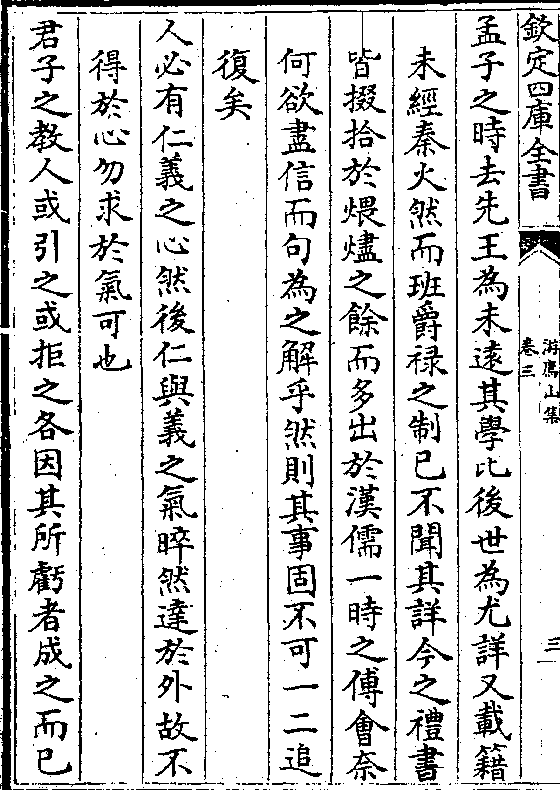 欽定四庫全書
游廌山集
卷三
三
孟子之時去先王為未遠其學比後世為尤詳又載籍
未經秦火然而班爵禄之制已不聞其詳今之禮書
皆掇拾於煨燼之餘而多出於漢儒一時之傅會奈
何欲盡信而句為之解乎然則其事固不可一二追
復矣
人必有仁義之心然後仁與義之氣睟然達於外故不
得於心勿求於氣可也
君子之教人或引之或拒之各因其所虧者成之而已